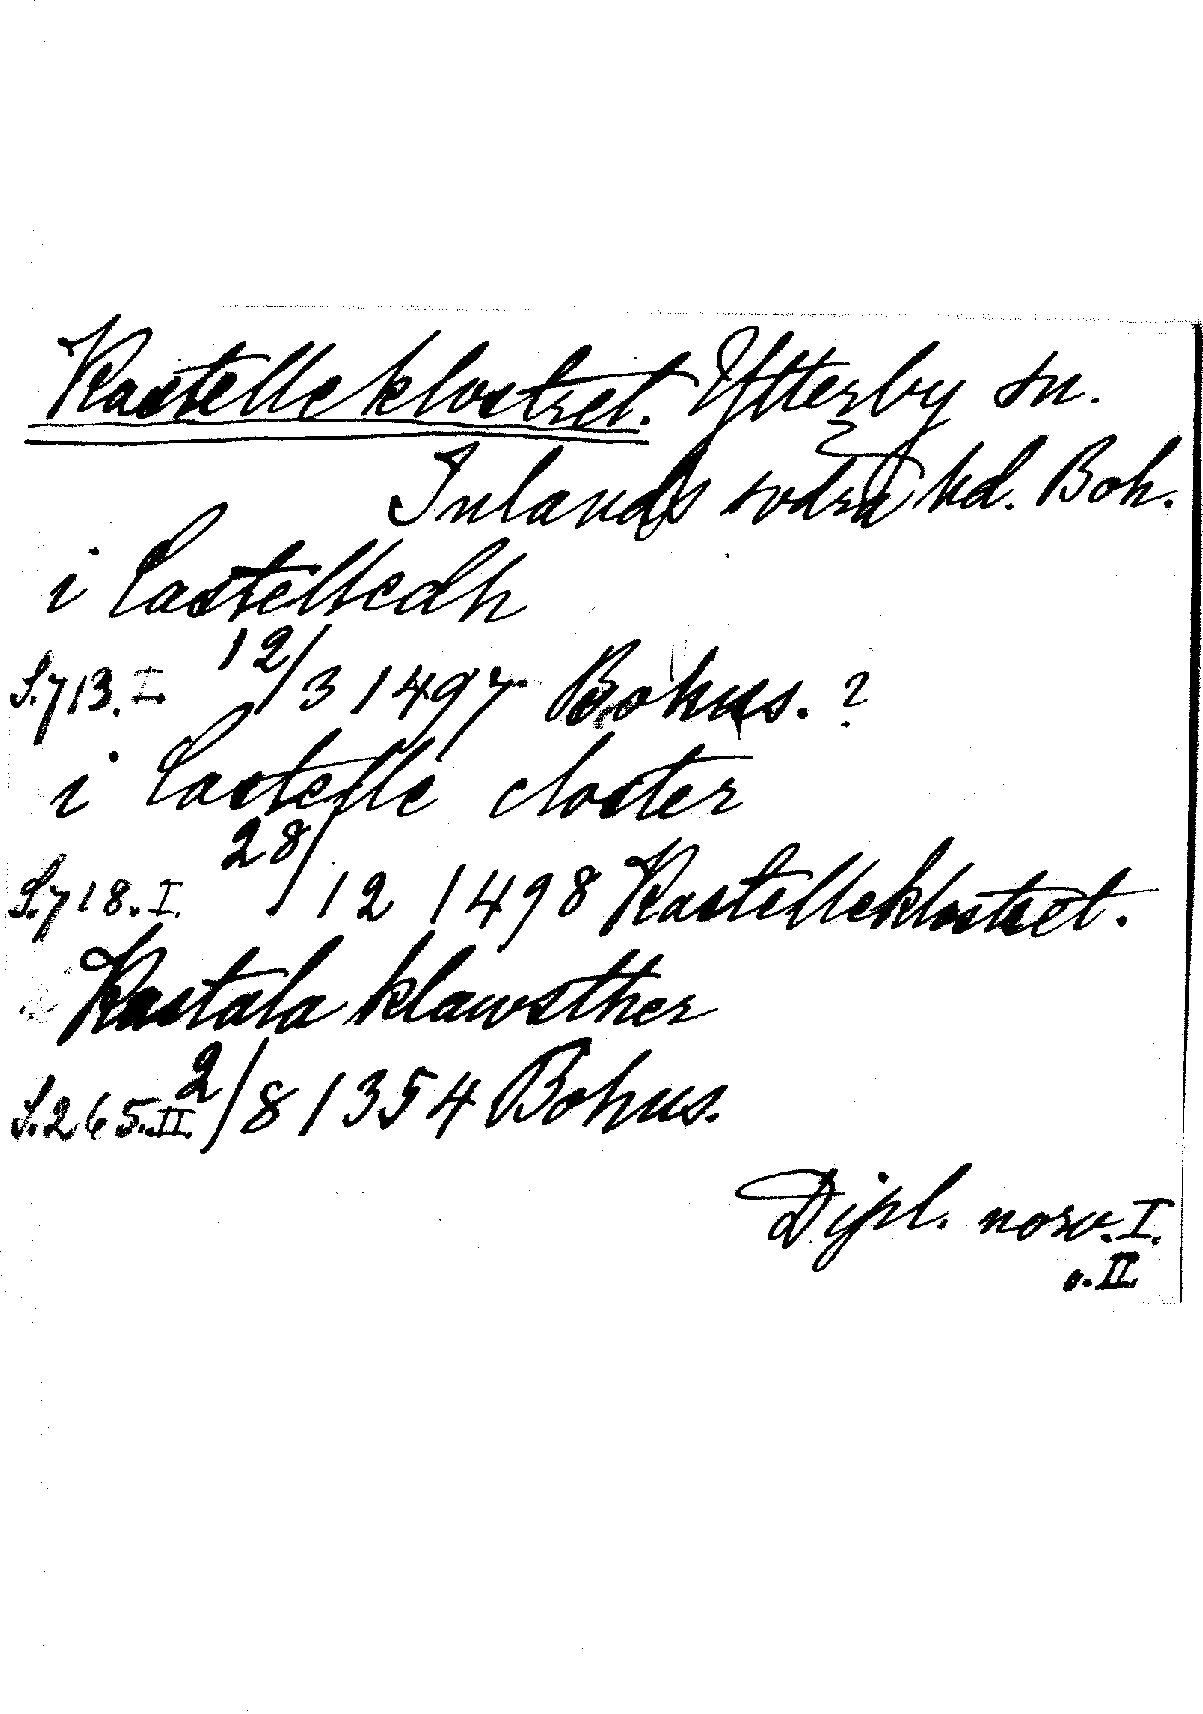 Kastelleklostret. Ytterby sn.
Inlands södra hd. Boh.
i Castelledh
S.713.I. 12/3 1497 Bohus. ?
i Castelle closter
S.718.I. 28/12 1498 Kastelleklostret.
Kastala klawsther
S.265.II. 2/8 1354 Bohus.
Dipl. norv. I.
o. II